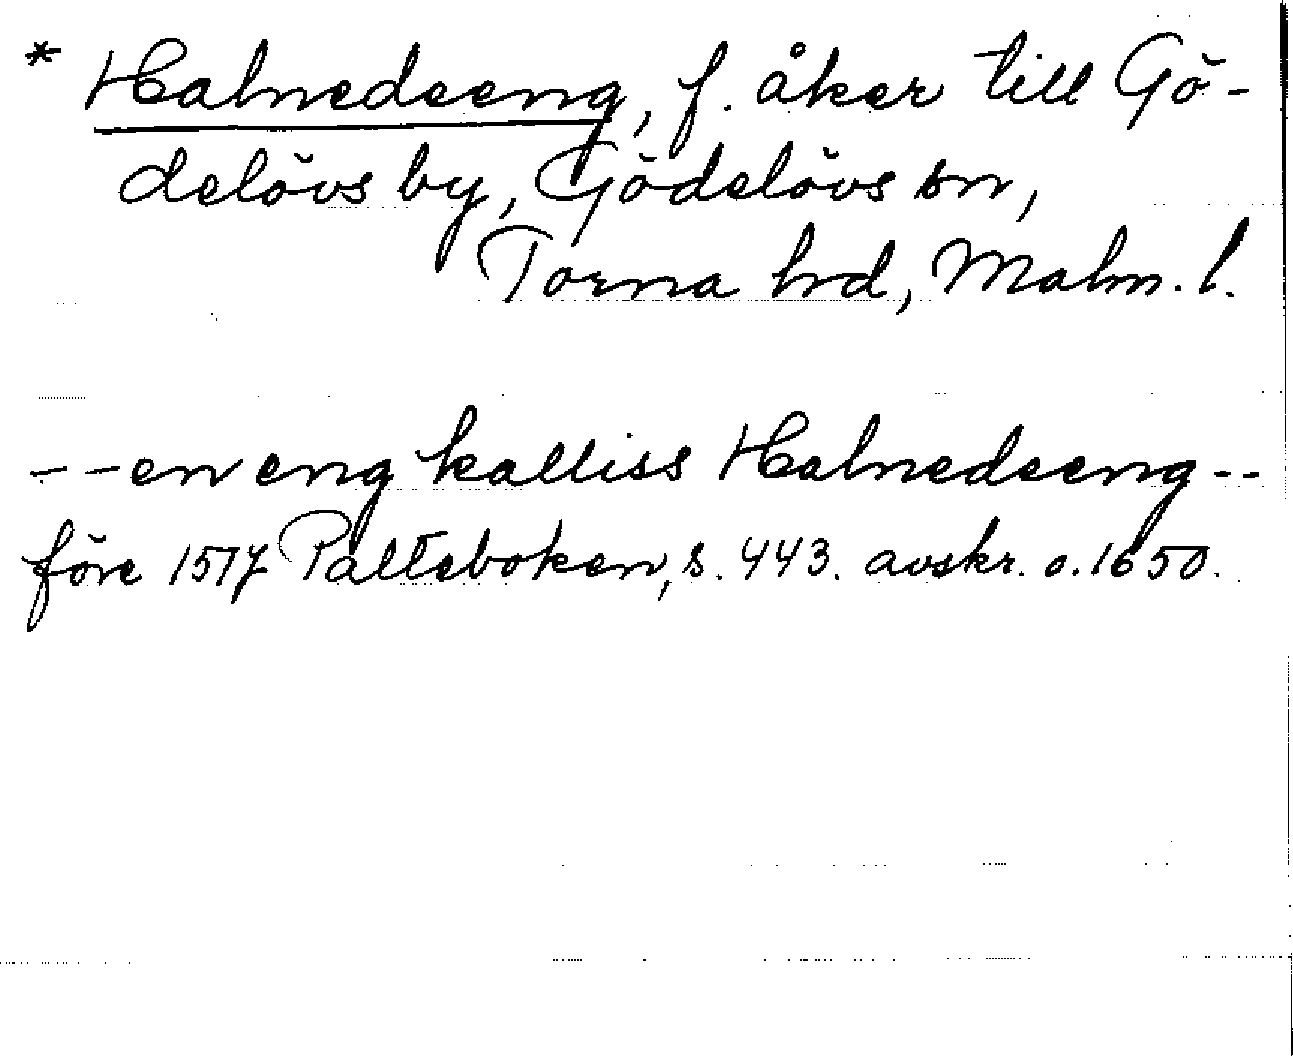 * Halnedeeng, f. åker till Gö-
delövs by, Gödelövs sn,
Torna hrd, Malm. l.
-- en eng kalliss Halnedeeng --
före 1517 Palteboken, s. 443. avskr. o. 1650.